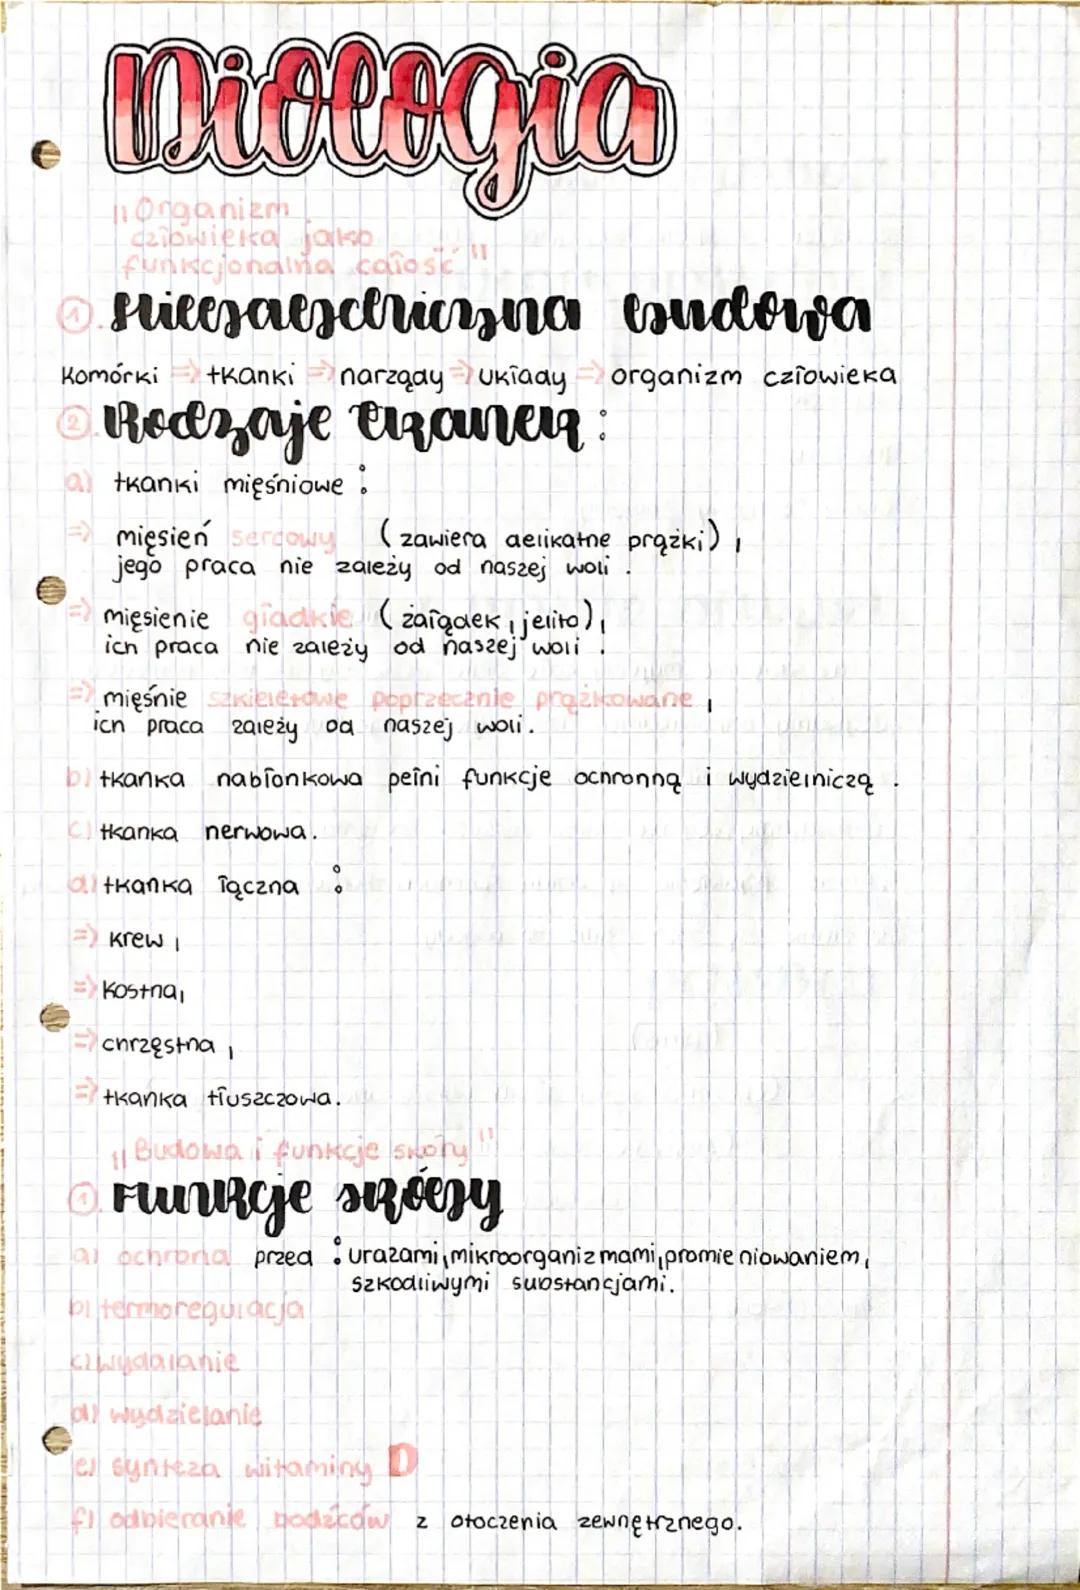 Biologia
"Organizm
człowieka jako
funkcjonalna całość"
1. Hierarchiczna budowa
Komórki => tkanki => narządy => układy => organizm człowieka
2. Rodzaje tkanek:
a) tkanki mięśniowe:
=> mięsień sercowy (zawiera delikatne prążki),
jego praca nie zależy od naszej woli.
=> mięsienie gładkie (żałądek, jelito),
ich praca nie zależy od naszej woli.
=> mięśnie szkieletowe poprzecznie prążkowane,
ich praca zależy od naszej woli.
b) tkanka nabłonkowa pełni funkcje ochronną i wydzielniczą.
c) tkanka nerwowa.
d) tkanka łączna:
=> krew,
=> kostna,
=> chrzęstna,
=> tkanka tłuszczowa.
"Budowa i funkcje skóry"
1. Funkcje skóry
a) ochrona przed: urazami, mikroorganizmami, promieniowaniem,
szkodliwymi substancjami.
b) termoregulacja
c) wydalanie
d) wydzielanie
e) synteza witaminy D
f) odbieranie bodźców z otoczenia zewnętrznego.